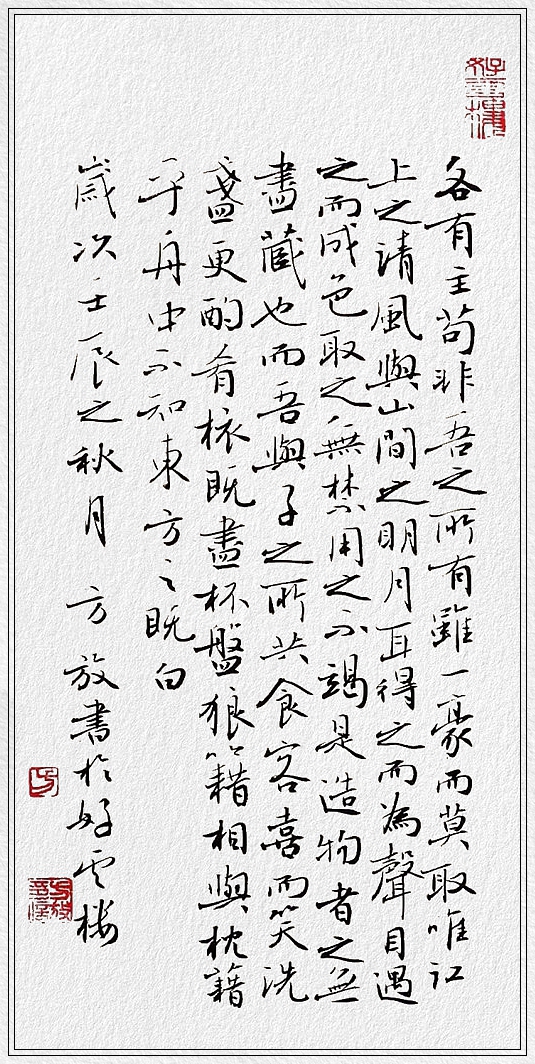 各有主苟非吾之所有雖一豪而莫取唯江
上之清風與山間之明月耳得之而為聲目遇
之而成色取之無禁用之不竭是造物者之無
盡藏也而吾與子之所共食客喜而笑洗
盞更酌肴核既盡杯盤狼籍相與枕籍
乎舟中不知東方之既白
歲次壬辰之秋月 方放書於好雲楼